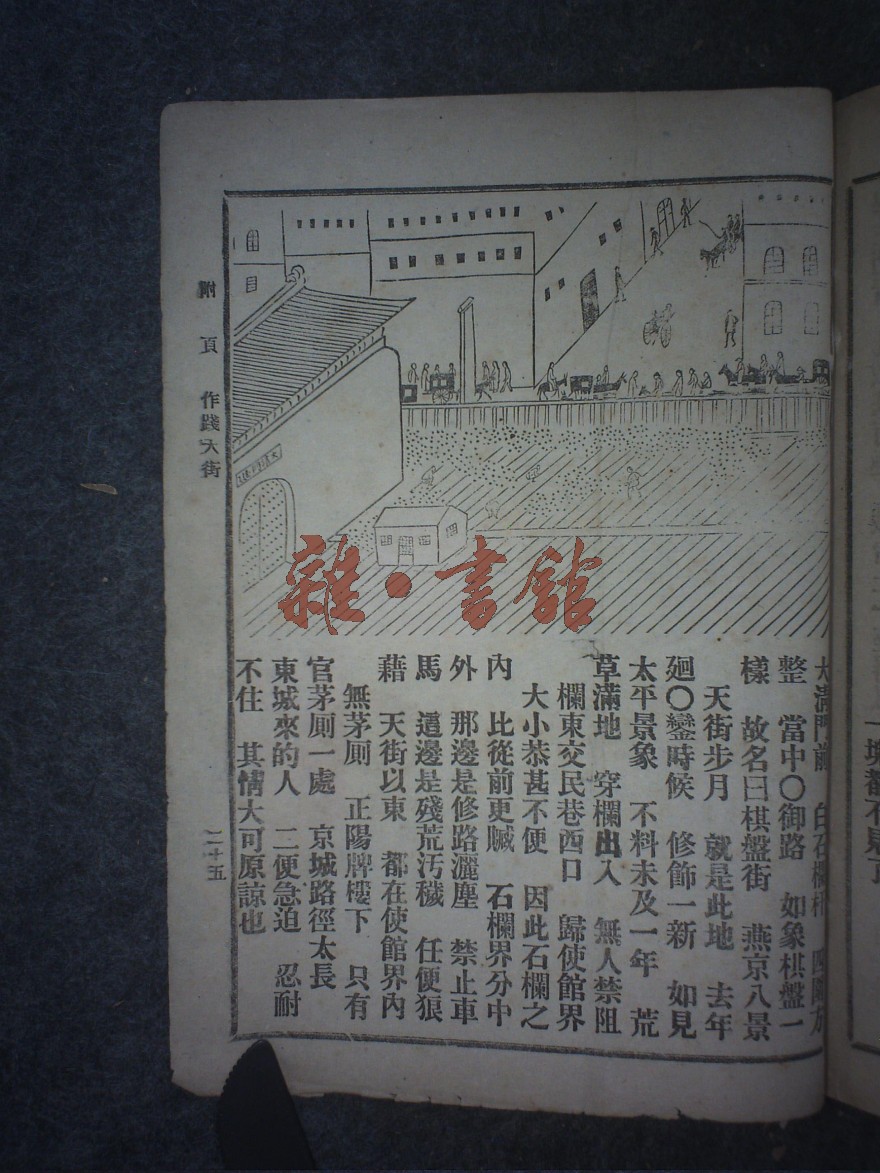 大清門前 白石欄杆 四圍方
整 當中〇御路 如象棋盤一
樣 故名曰棋盤街 燕京八景
天街步月 就是此地 去年
廻〇鑾時候 修飾一新 如見
太平景象 不料未及一年 荒
草滿地 穿欄出入 無人禁阻
欄東交民巷西口 歸使館界
大小恭甚不便 因此石欄之
內 比從前更贓 石欄界分中
外 那邊是修路灑塵 禁止車
馬 這邊是殘荒汚穢 任便狼
藉 天街以東 都在使館界內
無茅厠 正陽牌樓下 只有
官茅厠一處 京城路徑太長
東城來的人 二便急迫 忍耐
不住 其情大可原諒也
附頁 作踐大街
二十五
雜·書館